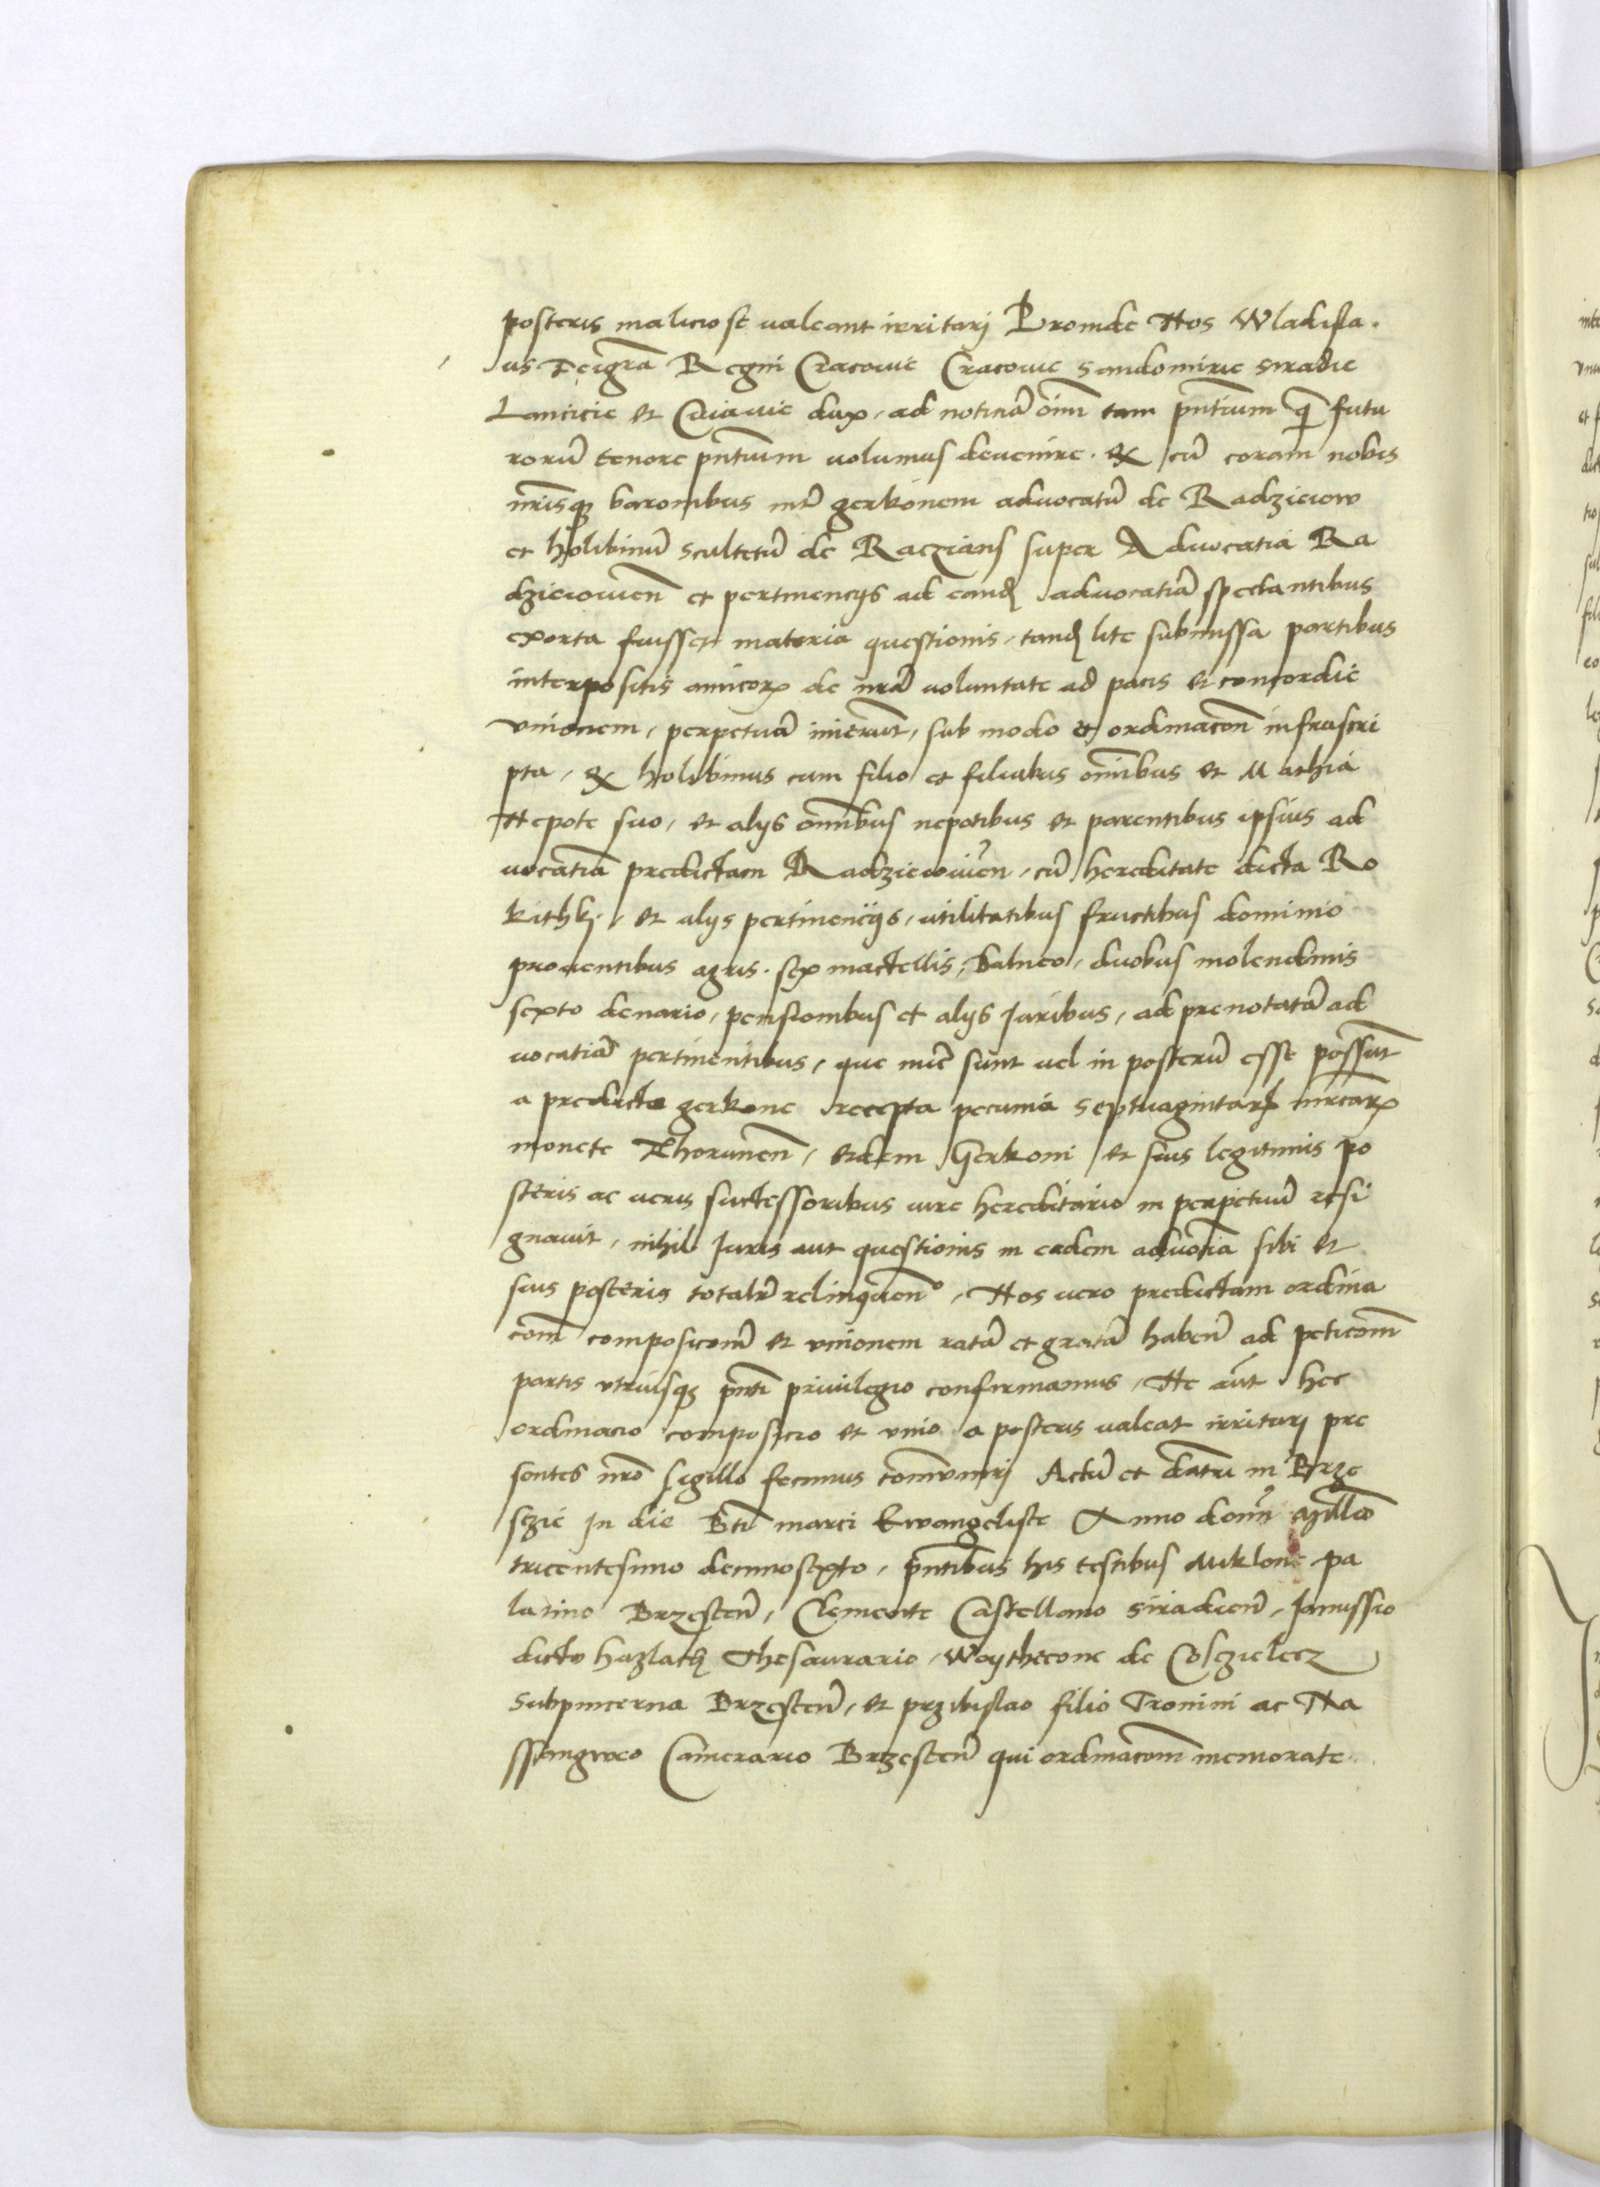 posteris maliciose valeant irritarj Proinde Nos Wladisla.
us Dei grã Regni Cracovie Cracovie Sandomirie Siradie
Lancicie et Cuiavie dux, ad noticiã oĩm tam pñtium q̃ futu
rorũ tenore pñtium volumus devenire. Qx cũ coram nobis
nr̃isq̃ baronibus int̃ gerkonem advocatũ de Radzieiow
et holibinũ scultetũ de Raczians super Advocatia Ra
dzieiowien̄ et pertinencijs ad eand̃ advocatiã spectantibus
exorta fuisset materia questionis, tand̃ lite submissa partibus
interpositis amicorꝝ de nr̃a voluntate ad pacis et concordie
vnionem, perpetuã inierunt, sub modo et ordinacõn infrascri
pta, Qx holibinus cum filio et filiabus oĩnibus et Mathia
Nepote suo, et alijs omnibus nepotibus et parentibus ipsius ad
vocatiã predictam Radzieiowien̄, cũ hereditate dicta Ro
kithkj, et alijs pertinencijs, utilitatibus fructibus dominio
proventibus agris. sex mactellis, Balneo, duobus molendinis
sexto denario, pensionibus et alijs Juribus, ad prenotatã ad
vocatiã pertinentibus, que nũc sunt vel in posterũ esse possunt
a predicto gerkone recepta pecunia septuagintarꝝ mrcarꝝ
monete Thorunen̄, eidem Gerkoni et suis legitimis po
steris ac veris successoribus iure hereditario in perpetuũ resi
gnavit, nihil Juris aut questionis in eadem advoc̃tia sibi et
suis posteris totalr̃ relinquen̄, Nos vero predictam ordina
com̃ composicom̃ et vnionem ratã et gratã haben̄ ad peticom̃
partis vtriusq̃ pñti privilegio confirmamus, Ne aũt hec
ordinacio composicio et vnio a posteris valeat irritarj pre
sentes nr̃o sigillo fecimus com̃unirj Actũ et datũ in Brze
sczie In die Bti marci Ewangeliste Anno domĩ millõ
tricentesimo decimosexto, pñtibus his testibus Miklone pa
latino Brzesten̄, Clemente Castellano Siradien̄, Janussio
dicto hazlath Thesaurario, Woythecone de Cosczielecz
Subpincerna Brzesten̄, et przibislao filio Tronini ac Na
ssangwoco Camerario Brzesten̄ qui ordinacom̃ memorate